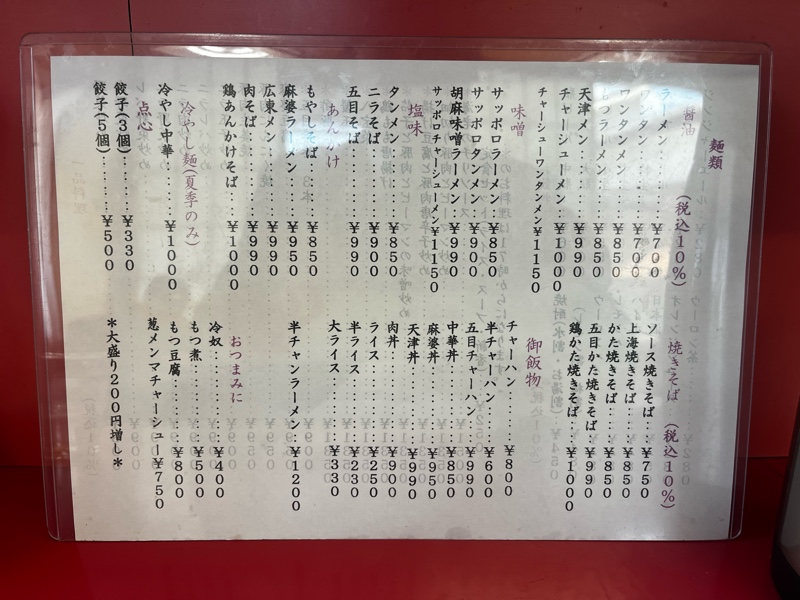 麺類 (税込10%)
醤油
ラーメン……¥700
ワンタン……¥700
ワンタンメン……¥850
もつラーメン……¥850
天津メン……¥990
チャーシューメン……¥1000
チャーシューワンタンメン¥1150
味噌
サッポロラーメン……¥850
サッポロタンメン……¥900
胡麻味噌ラーメン……¥990
サッポロチャーシューメン¥1150
塩味
タンメン……¥850
ニラそば……¥900
五目そば……¥990
あんかけ
もやしそば……¥850
麻婆ラーメン……¥950
広東メン……¥990
肉そば……¥990
鶏あんかけそば……¥1000
冷やし麺(夏季のみ)
冷やし中華……¥1000
点心
餃子(3個)……¥330
餃子(5個)……¥500
焼きそば (税込10%)
ソース焼きそば……¥750
上海焼きそば……¥850
かた焼きそば……¥850
五目かた焼きそば……¥990
鶏かた焼きそば……¥1000
御飯物
チャーハン……¥800
半チャーハン……¥600
五目チャーハン……¥990
中華丼……¥850
麻婆丼……¥950
天津丼……¥990
肉丼……¥990
ライス……¥250
半ライス……¥230
大ライス……¥330
半チャンラーメン……¥1200
おつまみに
冷奴……¥400
もつ煮……¥500
もつ豆腐……¥800
葱メンマチャーシュー¥750
＊大盛り200円増し＊